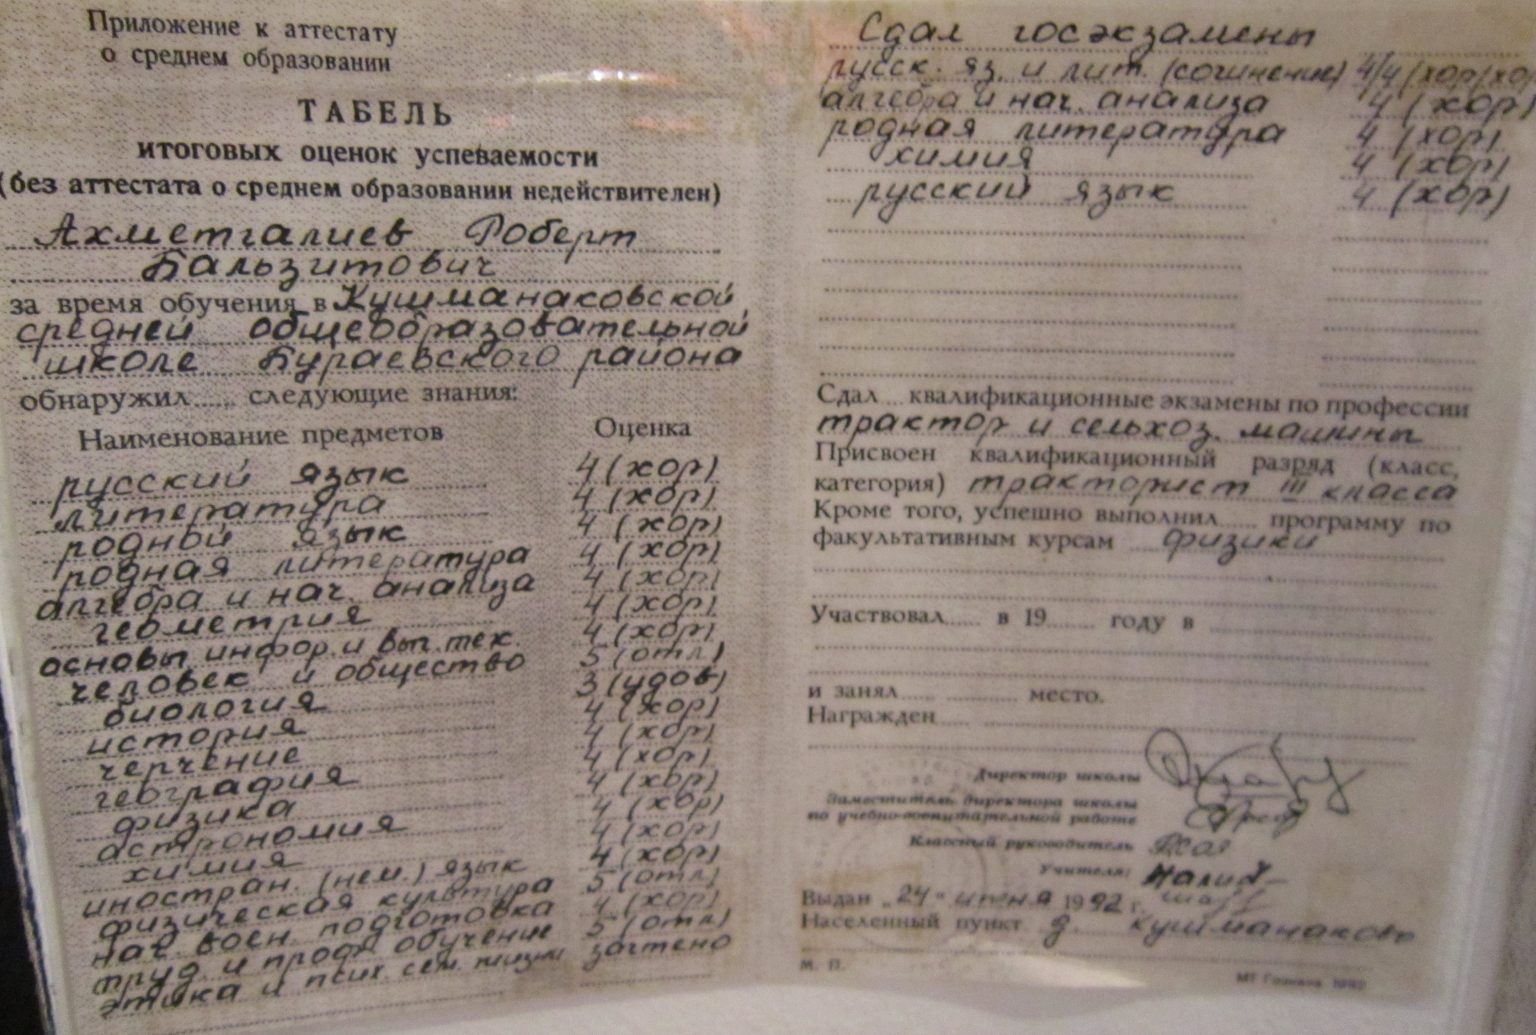 Приложение к аттестату
о среднем образовании
ТАБЕЛЬ
итоговых оценок успеваемости
(без аттестата о среднем образовании недействителен)
Ахметгалиев Роберт
Бальзитович
за время обучения в Кушманаковской
средней общеобразовательной
школе Бураевского района
обнаружил...... следующие знания:
Наименование предметов Оценка
русский язык 4 (хор)
литература 4 (хор)
родной язык 4 (хор)
родная литература 4 (хор)
алгебра и нач. анализа 4 (хор)
геометрия 4 (хор)
основы инфор. и выч тех. 4 (хор)
человек и общество 5 (отл)
биология 3 (удов)
история 4 (хор)
черчение 4 (хор)
география 4 (хор)
физика 4 (хор)
астрономия 4 (хор)
химия 4 (хор)
иностран. (нем.) язык 4 (хор)
физическая культура 5 (отл)
нач. воен. подготовка 4 (хор)
труд. и проф. обучение 5 (отл)
этика и псих. сем. жизни зачтено
Сдал госэкзамены
русск. яз. и лит. (сочинение) 4/4 (хор/хор
алгебра и нач. анализа 4 (хор)
родная литература 4 (хор)
химия 4 (хор)
русский язык 4 (хор)
Сдал.... квалификационные экзамены по профессии
трактор и сельхоз. машины
Присвоен квалификационный разряд (класс,
категория) тракторист III класса
Кроме того, успешно выполнил...... программу по
факультативным курсам физики
Участвовал...... в 19...... году в
и занял ...... место.
Награжден
Директор школы
Заместитель директора школы
по учебно-воспитательной работе
Классный руководитель
Учителя:
Выдан „24" июня 1992 г.
Населенный пункт д. Кушманаково
М. П.